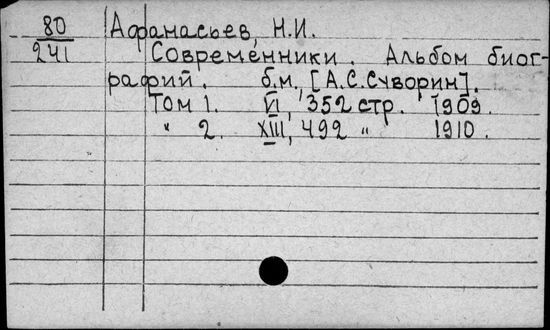 80 Афанасьев, Н.И.
241 Современники. Альбом биог-
рафий. б.м., [А.С.Суворин].
Том 1. VI, 352 стр. 1909.
" 2. XIII, 492 " 1910.